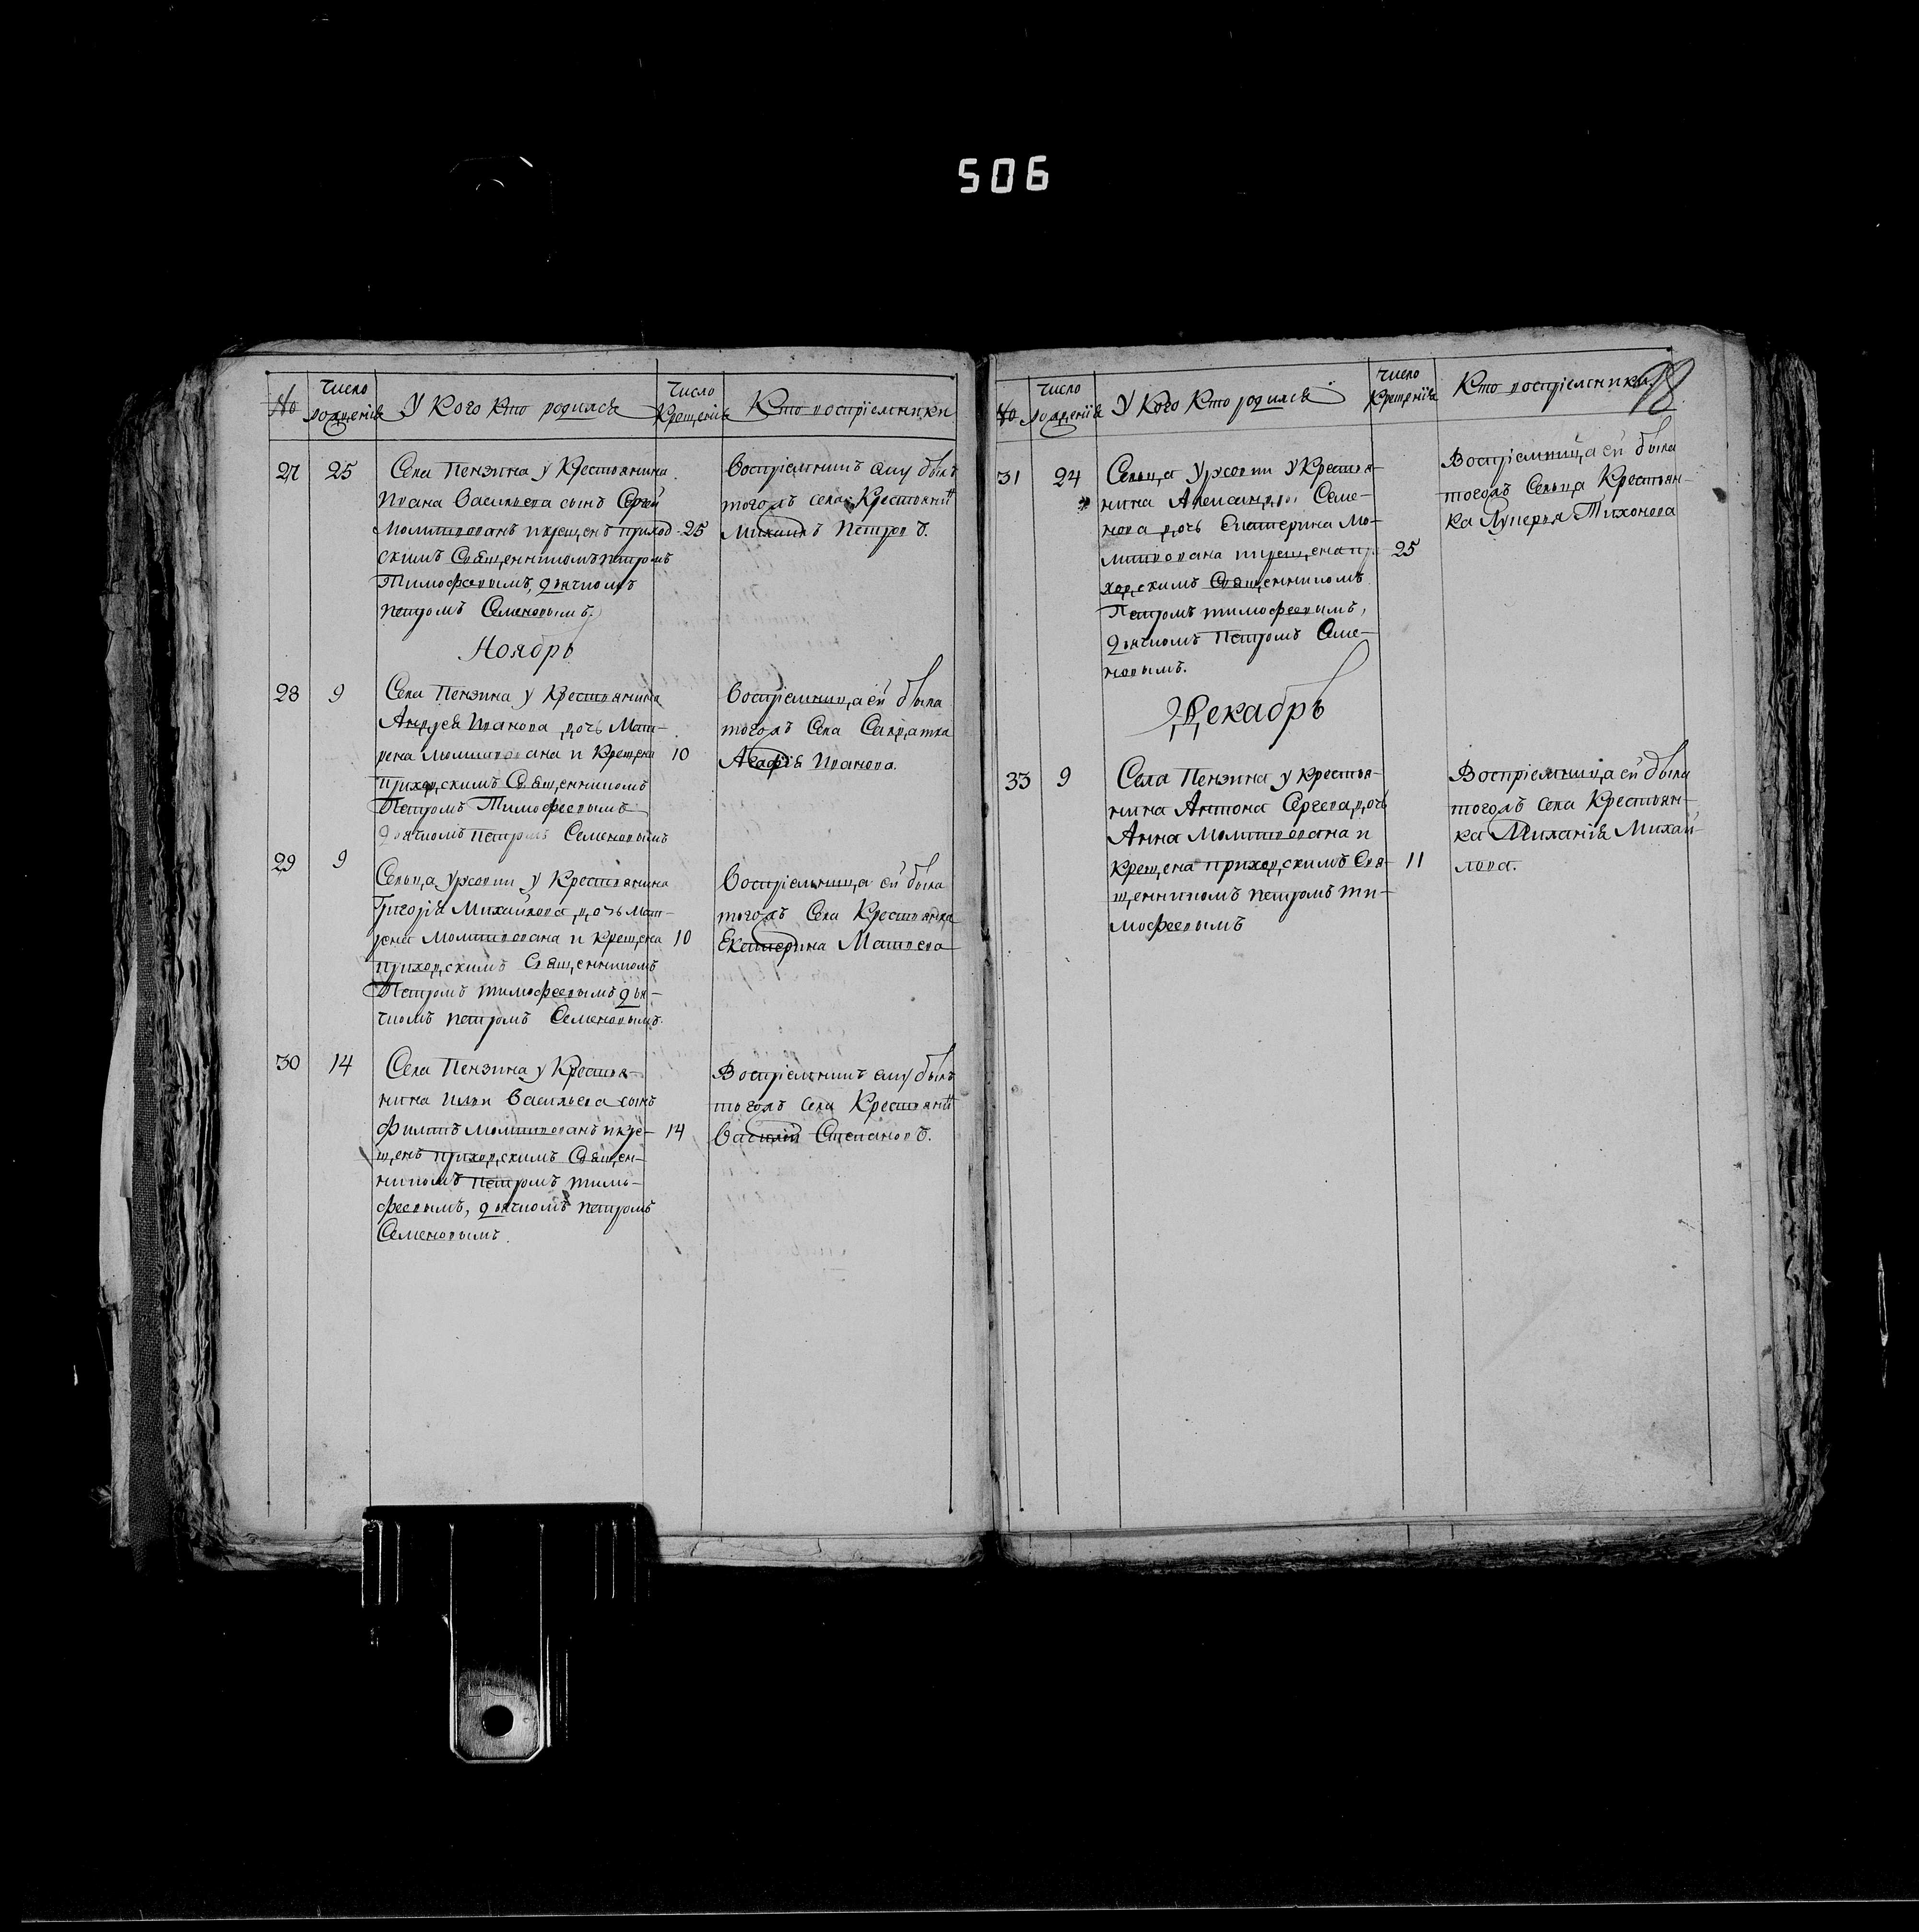 506
№
Число рожденія
У Кого Кто родился
Число Крещенія
Кто воспріемники
27
25
Села Пензина у Крестьянина
Ивана Васильева сынъ Сергей
Молитвованъ и крещенъ приход
25
скимъ Священникомъ Петромъ
Тимофеевымъ, дьячкомъ
Петромъ Семеновымъ.
Воспріемникъ ему былъ
тогожъ села Крестьянинъ
Михаилъ Петровъ.
Ноябрь
28
9
Села Пензина у Крестьянина
Андрея Иванова дочь Мат-
рена молитвована и Крещена
10
приходскимъ Священникомъ
Петромъ Тимофеевымъ
дьячкомъ Петромъ Семеновымъ
Воспріемница ей была
тогожъ Села Салдатка
Агафія Иванова.
29
9
Сельца Ужовки у Крестьянина
Григорія Михайлова дочь Мат-
рена молитвована и крещена
10
приходскимъ Священникомъ
Петромъ тимофеевымъ дья-
чкомъ Петромъ Семеновымъ.
Воспріемница ей была
тогожъ Села Крестьянка
Екатерина Матвева
30
14
Села Пензина у Крестья-
нина Ильи Васильева сынъ
Филипъ молитвованъ и кре-
14
щенъ приходскимъ Священ-
никомъ Петромъ тимо-
феевымъ, дьячкомъ Петромъ
Семеновымъ.
Воспріемникъ ему былъ
тогожъ села Крестьянинъ
Василій Степановъ.
98
№
Число рожденія
У Кого Кто родился
Число Крещенія
Кто воспріемники
31
24
Сельца Ужовки у Крестья-
нина Александра Семе-
нова дочь Екатерина Мо-
литвована и крещена при
25
ходскимъ Священникомъ
Петромъ тимофеевымъ,
дьячкомъ Петромъ Семе-
новымъ.
Воспріемница ей была
тогожъ Сельца Крестьян-
ка Лукерья Тихонова
Декабрь
33
9
Села Пензина у крестья-
нина Антона Сергеева дочь
Анна Молитвована и
Крещена приходскимъ Свя-
11
щенникомъ Петромъ ти-
мофеевымъ
Воспріемница ей была
тогожъ села Крестьян-
ка Миланія Михай-
лова.